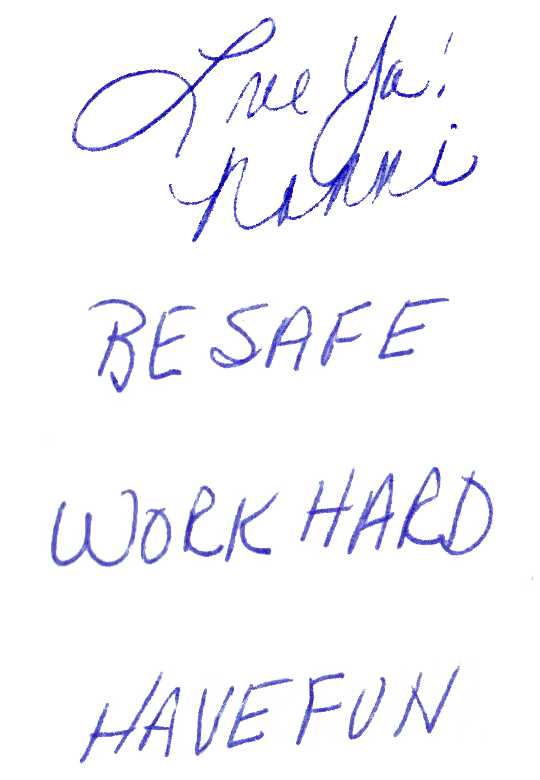 Love Ya!
Nanni
BE SAFE
WORK HARD
HAVE FUN